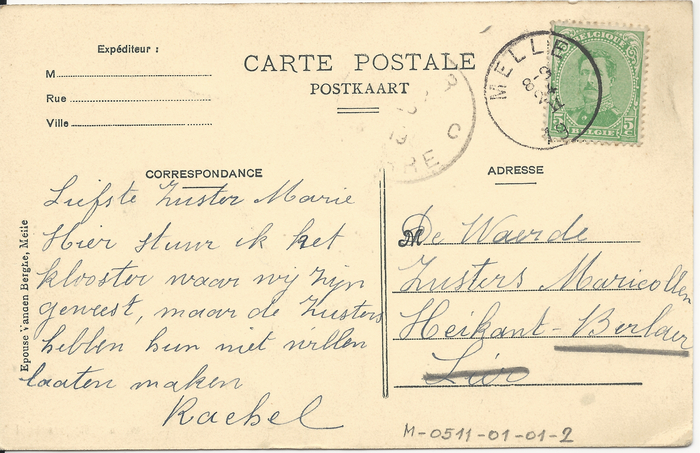 Expéditeur :
M
Rue
Ville
CARTE POSTALE
POSTKAART
MELLE
BELGIQUE
5 5
BELGIË
CORRESPONDANCE
ADRESSE
Liefste Zuster Marie
Hier stuur ik het
klooster waar wij zyn
geweest, maar de Zusters
hebben hun niet willen
laaten maken
Rachel
M De Waerde
Zusters Maricollen
Heikant-Berlaer
Lier
Epouse Vanden Berghe, Melle
M-0511-01-01-2